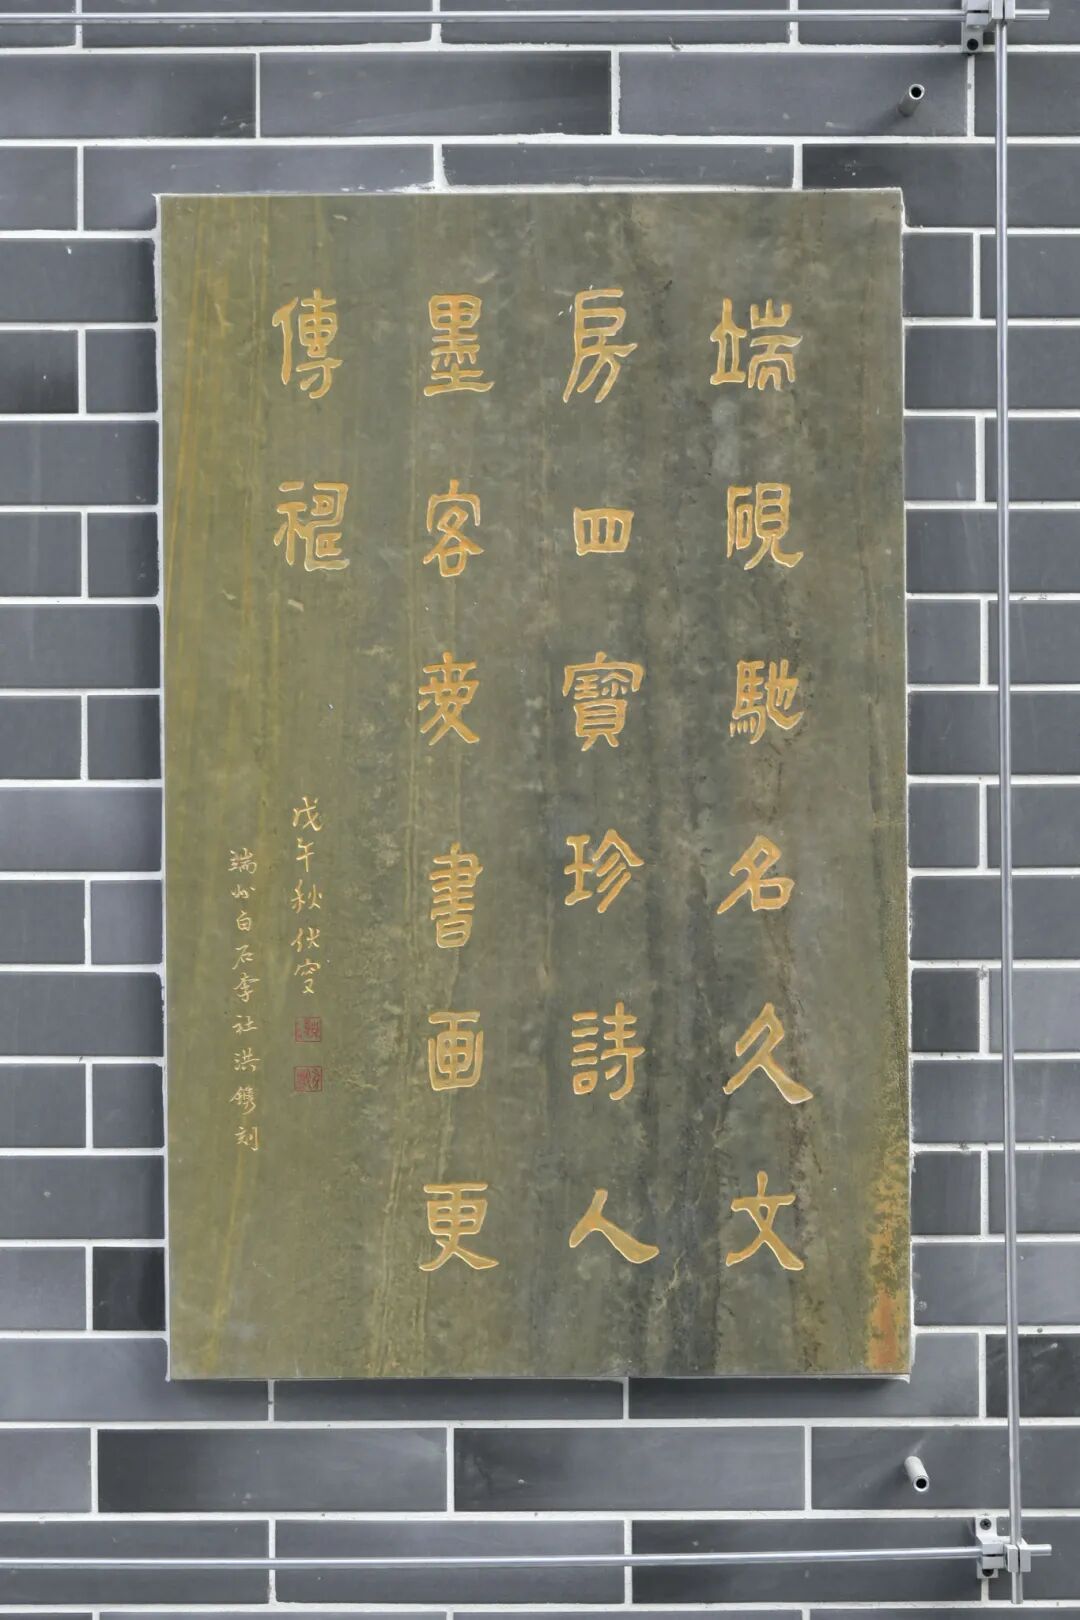 端硯馳名久文
房四寶珍詩人
墨客爱書画更
傳神
戊午秋
端州白石李社洪鐫刻